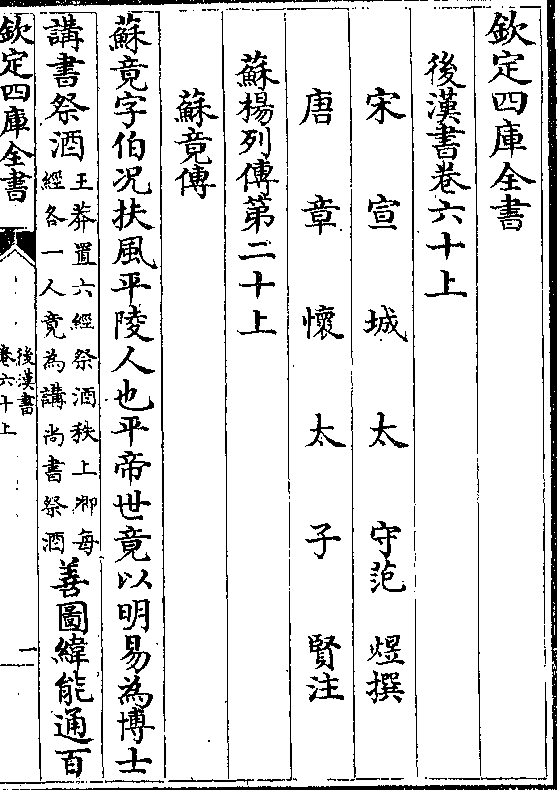 欽定四庫全書
後漢書卷六十上
宋宣城太守范煜撰
唐章懷太子賢注
蘇楊列傳第二十上
蘇竟傳
蘇竟字伯况扶風平陵人也平帝世竟以明易為博士
講書祭酒王莽置六經祭酒秩上卿每經各一人竟為講尚書祭酒善圖緯能通百
欽定四庫全書
後漢書
卷六十上
一